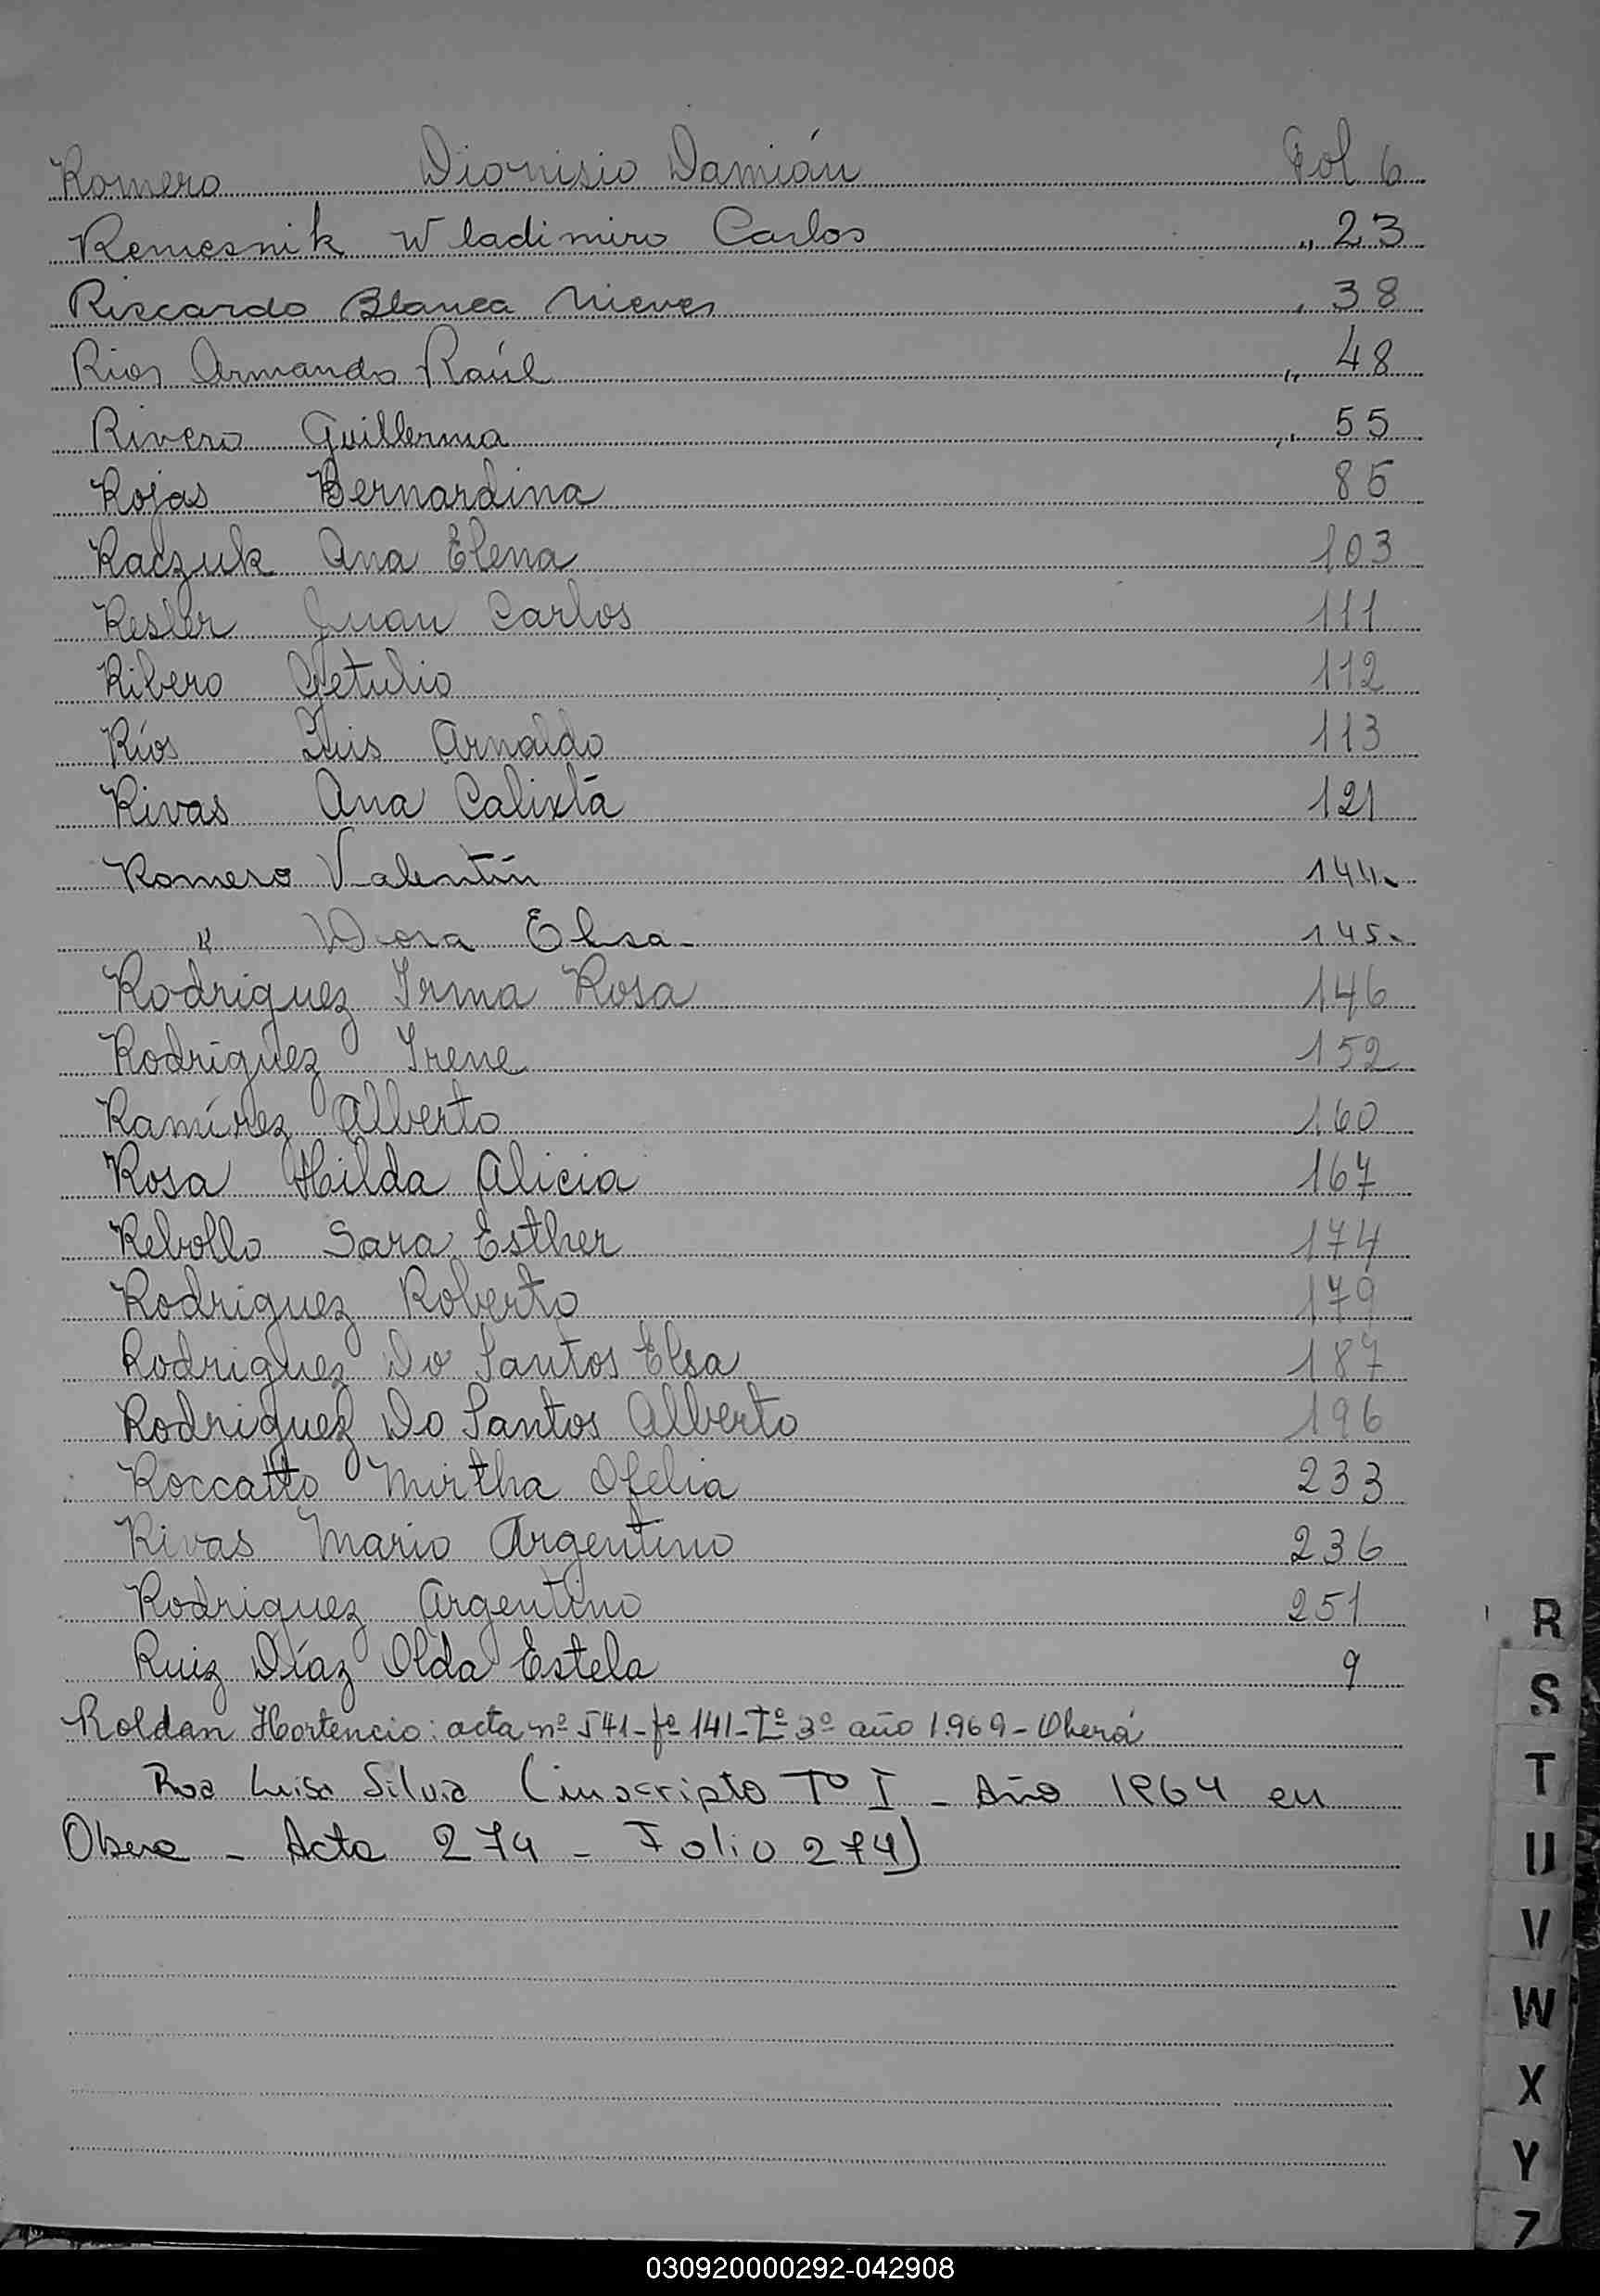 Romero Dionisio Damián Fol 6
Remesnik Wladimiro Carlos " 23
Riscardo Blanca Nieves " 38
Rios Armando Raúl " 48
Rivero Guillerma " 55
Rojas Bernardina 85
Raczuk Ana Elena 103
Resler Juan Carlos 111
Ribero Getulio 112
Ríos Luis Arnaldo 113
Rivas Ana Calixta 121
Romero Valentín 144.
" Dora Elsa - 145.
Rodriguez Irma Rosa 146
Rodriguez Irene 152
Ramírez Alberto 160
Rosa Hilda Alicia 167
Rebollo Sara Esther 174
Rodriguez Roberto 179
Rodriguez Do Santos Elsa 187
Rodriguez Do Santos Alberto 196
Roccatto Mirtha Ofelia 233
Rivas Mario Argentino 236
Rodriguez Argentino 251
Ruiz Díaz Olda Estela 9
Roldan Hortencio: acta nº 541 - fº 141 - Tº 3º año 1.969 - Oberá
Roa Luisa Silvia (inscripto Tº I - Año 1964 en
Obera - Acta 274 - Folio 274)
R
S
T
U
V
W
X
Y
Z
030920000292-042908